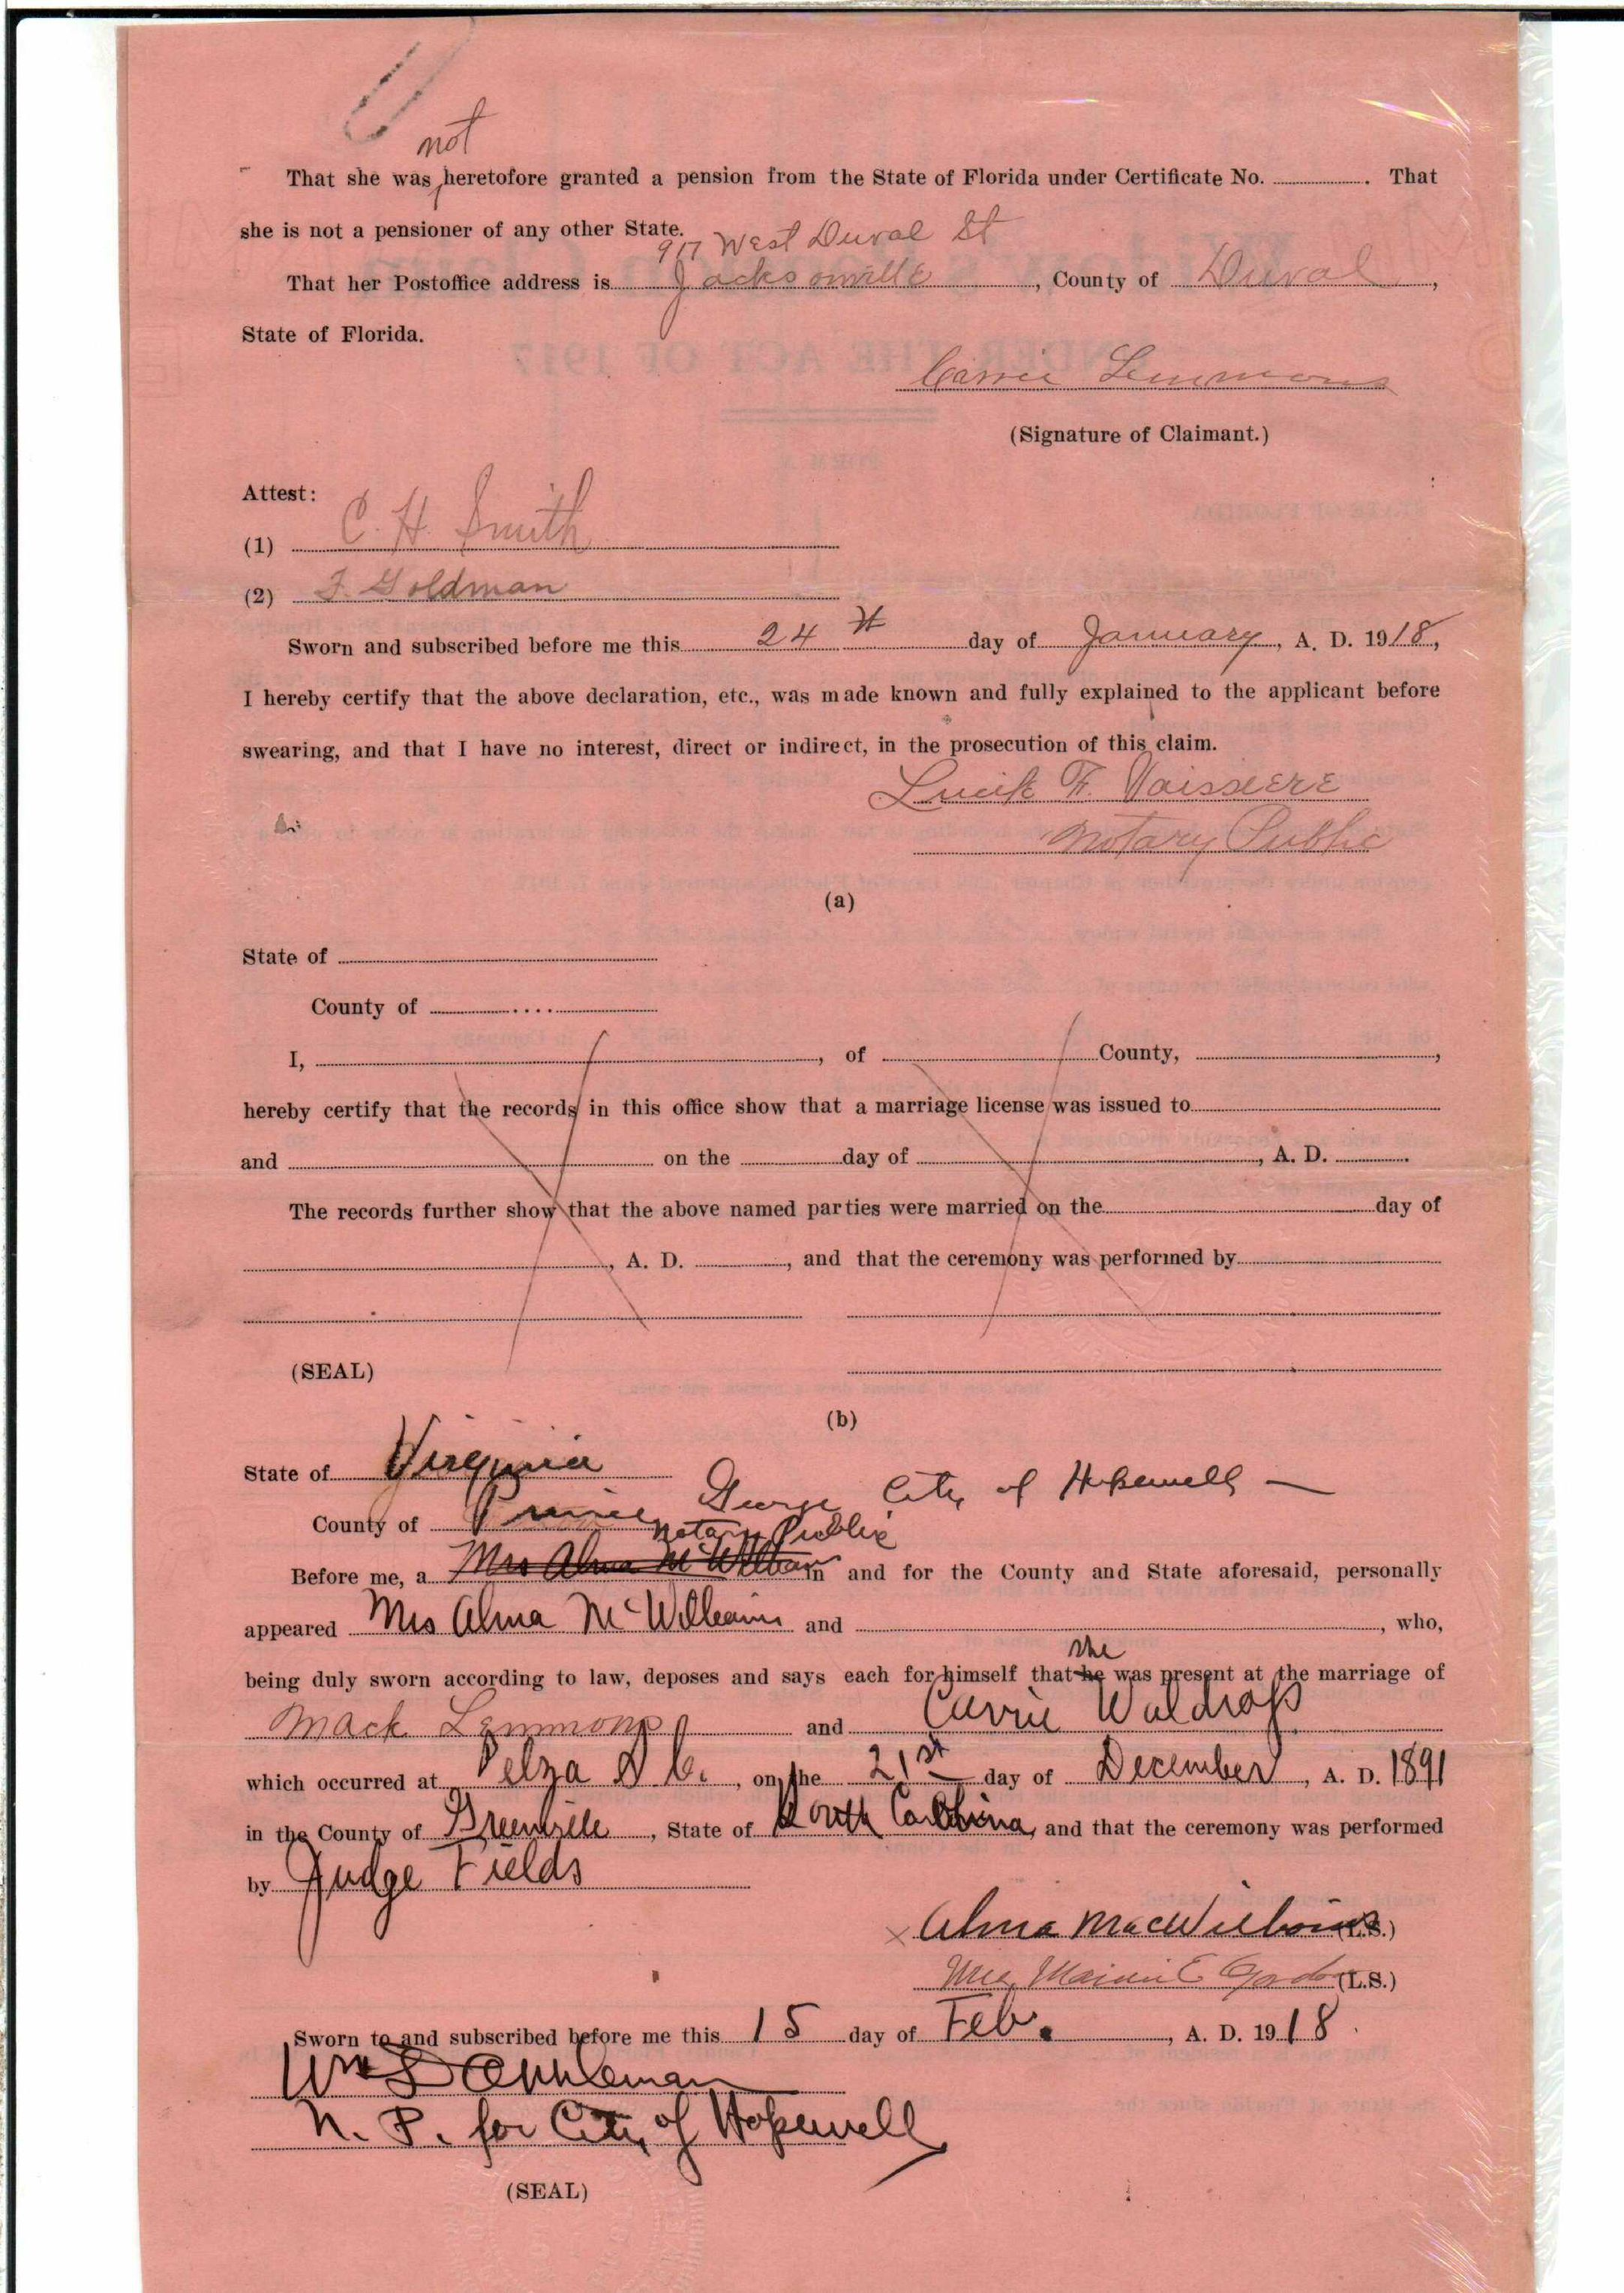 not
That she was heretofore granted a pension from the State of Florida under Certificate No. . That
she is not a pensioner of any other State.
917 West Duval St
That her Postoffice address is Jacksonville, County of Duval,
State of Florida.
Carrie Lemmons
(Signature of Claimant.)
Attest:
(1) C. H. Smith
(2) F. Goldman
Sworn and subscribed before me this 24th day of January, A. D. 1918,
I hereby certify that the above declaration, etc., was made known and fully explained to the applicant before
swearing, and that I have no interest, direct or indirect, in the prosecution of this claim.
F. Vaissiere
Notary Public
(a)
State of
County of
I, , of County, ,
hereby certify that the records in this office show that a marriage license was issued to
and on the day of , A. D. .
The records further show that the above named parties were married on the day of
, A. D. , and that the ceremony was performed by
(SEAL)
(b)
State of Virginia
County of Prince George City of Hopewell —
Notary Public
Before me, a Mrs Alma McWilliam in and for the County and State aforesaid, personally
appeared Mrs Alma McWilliams and , who,
she
being duly sworn according to law, deposes and says each for himself that he was present at the marriage of
Mack Lemmons and Carrie Waldrop
which occurred at Pelza S C., on the 21st day of December, A. D. 1891
in the County of Greenville, State of South Carolina, and that the ceremony was performed
by Judge Fields
x Alma MacWilliams (L.S.)
Mrs (L.S.)
Sworn to and subscribed before me this 15 day of Feb. , A. D. 1918.
Wm
N. P. for City of Hopewell
(SEAL)